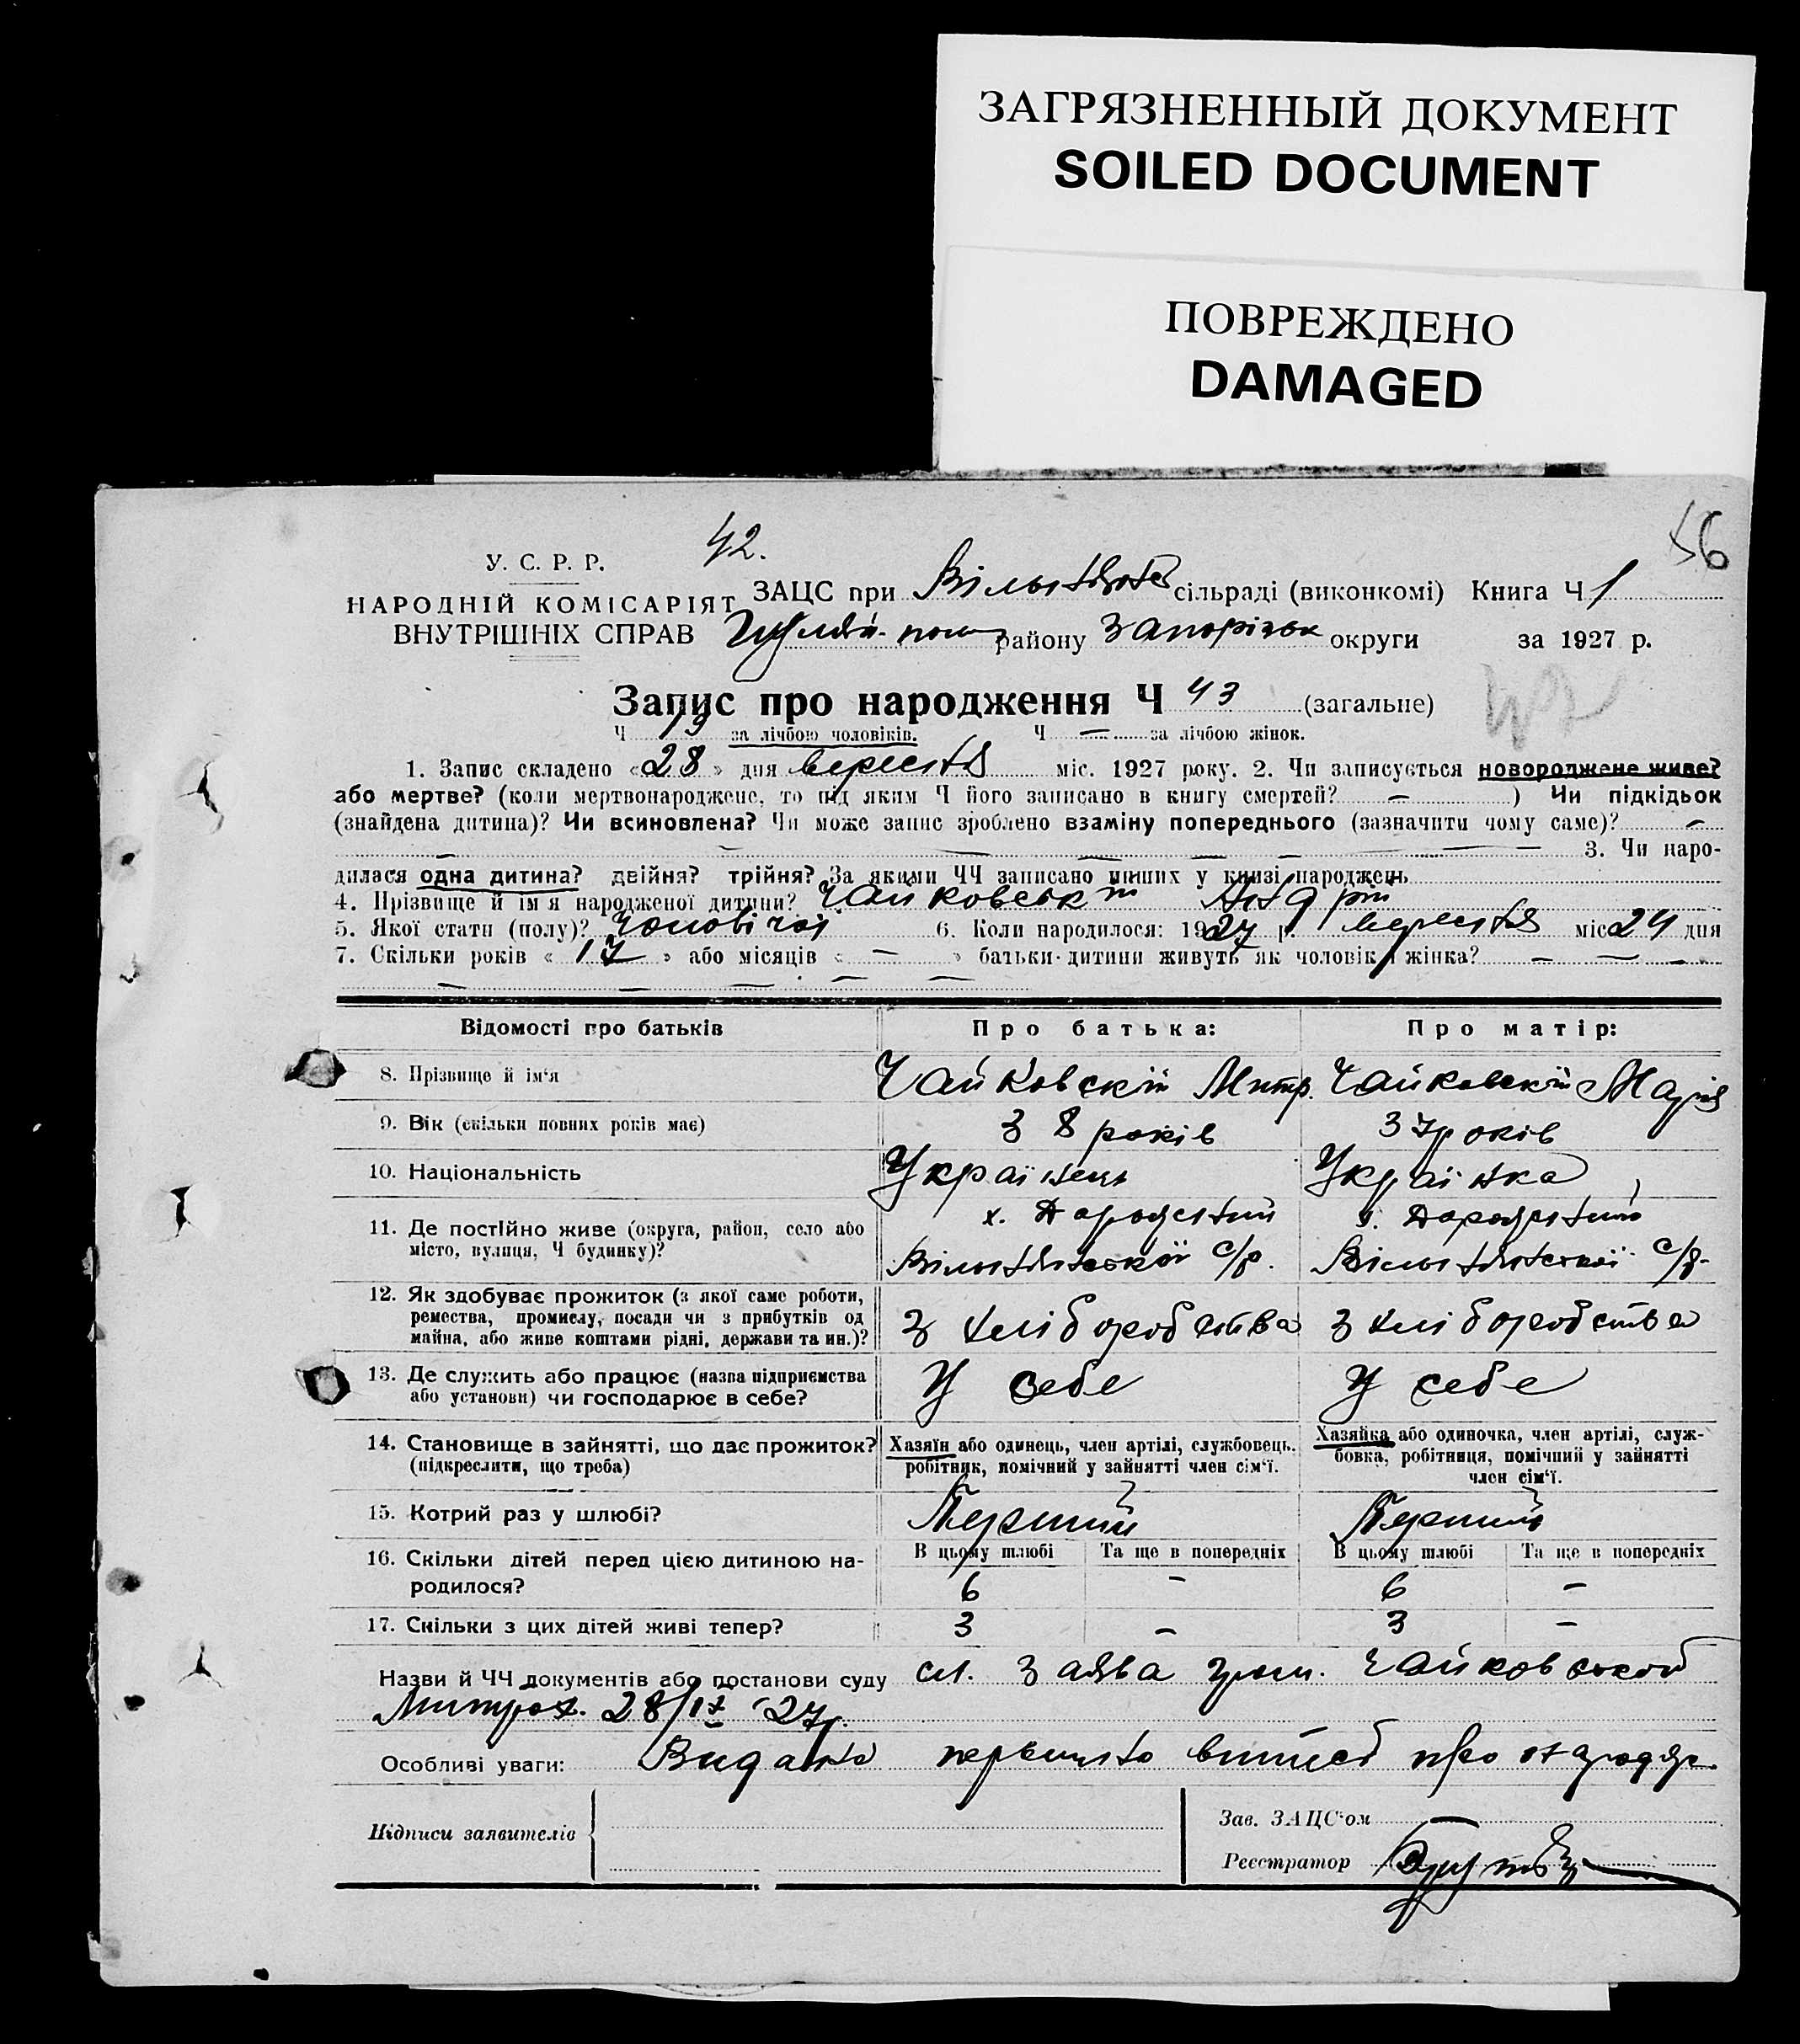 ЗАГРЯЗНЕННЫЙ ДОКУМЕНТ
SOILED DOCUMENT
ПОВРЕЖДЕНО
DAMAGED
42.
56
У. С. Р. Р.
НАРОДНІЙ КОМІСАРІЯТ
ВНУТРІШНІХ СПРАВ
ЗАЦС при сільраді (виконкомі) Книга Ч 1
Гуляй-пол району Запорізьк округи за 1927 р.
Запис про народження Ч 43 (загальне)
Ч 19 за лічбою чоловіків. Ч — за лічбою жінок.
1. Запис складено «28» дня вересня міс. 1927 року. 2. Чи записується новороджене живе?
або мертве? (коли мертвонароджене, то під яким Ч його записано в книгу смертей? — ) Чи підкідьок
(знайдена дитина)? Чи всиновлена? Чи може запис зроблено взаміну попереднього (зазначити чому саме)? —
3. Чи наро-
дилася одна дитина? двійня? трійня? За якими ЧЧ записано инших у книзі народжень
4. Прізвище й ім'я народженої дитини? Чайковській Андрій
5. Якої стати (полу)? Чоловічої 6. Коли народилося: 1927 р. вересня міс 24 дня
7. Скільки років «17» або місяців « — » батьки дитини живуть як чоловік і жінка? — — —
Відомості про батьків Про батька: Про матір:
8. Прізвище й ім'я Чайковскій Митр. Чайковскій Марія
9. Вік (скільки повних років має) 38 років 37 років
10. Національність Українець Українка
11. Де постійно живе (округа, район, село або
місто, вулиця, Ч будинку)?
х.
с/р. с/р.
12. Як здобуває прожиток (з якої саме роботи,
ремества, промислу, посади чи з прибутків од
майна, або живе коштами рідні, держави та ин.)?
З хліборобства З хліборобства
13. Де служить або працює (назва підприємства
або установи) чи господарює в себе?
У себе У себе
14. Становище в зайнятті, що дає прожиток?
(підкреслити, що треба)
Хазяїн або одинець, член артілі, службовець,
робітник, помічний у зайнятті член сім'ї.
Хазяйка або одиночка, член артілі, служ-
бовка, робітниця, помічний у зайнятті
член сім'ї.
15. Котрий раз у шлюбі? Перший Перший
16. Скільки дітей перед цією дитиною на-
родилося?
В цьому шлюбі Та ще в попередніх В цьому шлюбі Та ще в попередніх
6 — 6 —
17. Скільки з цих дітей живі тепер? 3 — 3 —
Назви й ЧЧ документів або постанови суду сл. заява гром. Чайковской
28/ІX 27р.
Особливі уваги: Видано про
Підписи заявителів
Зав. ЗАЦС'ом
Реєстратор